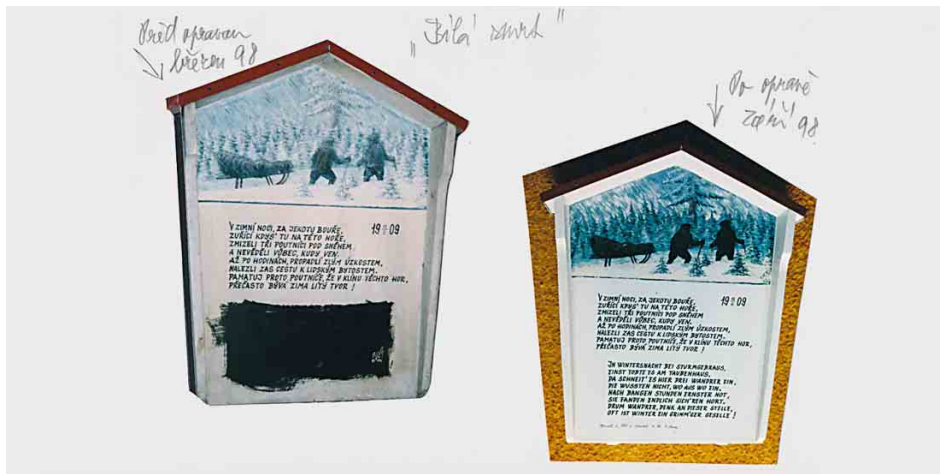 Před opravou
březen 98
„Bílá smrt"
Po opravě
Září 98
V ZIMNÍ NOCI, ZA JEKOTU BOUŘE,
ZUŘÍCÍ KDYS' TU NA TÉTO HOŘE,
ZMIZELI TŘI POUTNÍCI POD SNĚHEM
A NEVĚDĚLI VŮBEC, KUDY VEN.
AŽ PO HODINÁCH, PROPADLÍ ZLÝM ÚZKOSTEM,
NALEZLI ZAS CESTU K LIDSKÝM BYTOSTEM.
PAMATUJ PROTO POUTNÍČE, ŽE V KLÍNU TĚCHTO HOR,
PŘEČASTO BÝVÁ ZIMA LITÝ TVOR !
19 09
V ZIMNÍ NOCI, ZA JEKOTU BOUŘE,
ZUŘÍCÍ KDYS' TU NA TÉTO HOŘE,
ZMIZELI TŘI POUTNÍCI POD SNĚHEM
A NEVĚDĚLI VŮBEC, KUDY VEN.
AŽ PO HODINÁCH, PROPADLÍ ZLÝM ÚZKOSTEM,
NALEZLI ZAS CESTU K LIDSKÝM BYTOSTEM.
PAMATUJ PROTO POUTNÍČE, ŽE V KLÍNU TĚCHTO HOR,
PŘEČASTO BÝVÁ ZIMA LITÝ TVOR !
19 09
IN WINTERSNACHT BEI STURMGEBRAUS,
EINST TOBTE ES AM TAUBENHAUS,
DA SCHNEIT' ES HIER DREI WANDRER EIN.
DIE WUSSTEN NICHT, WO AUS WO EIN.
NACH BANGEN STUNDEN ERNSTER NOT,
SIE FANDEN ENDLICH SICH'REN HORT.
DRUM WANDRER, DENK AN DIESER STELLE,
OFT IST WINTER EIN GRIMM'GER GESELLE !